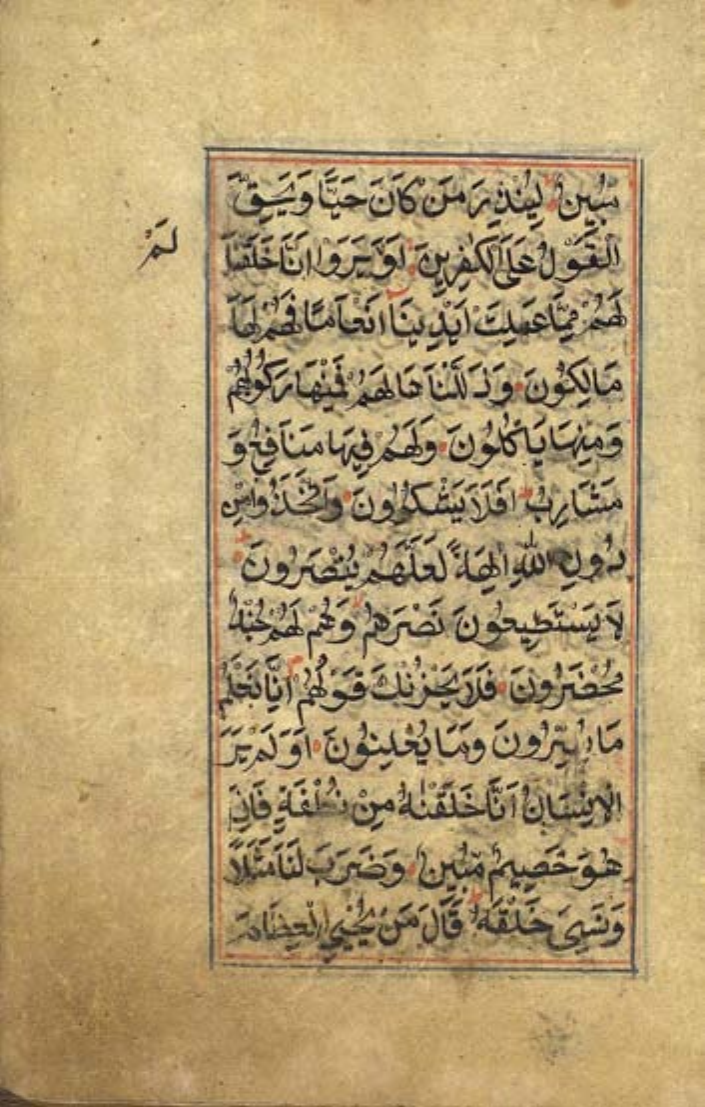 مُبِينٌ لِيُنْذِرَ مَنْ كَانَ حَيًّا وَيَحِقَّ
الْقَوْلُ عَلَى الْكَفِرِينَ اَوَ يَرَوْا اَنَّا خَلَقْنَا
لَمْ
لَهُمْ مِمَّا عَمِلَتْ اَيْدِينَا اَنْعَامًا فَهُمْ لَهَا
مَالِكُونَ وَذَلَّلْنَاهَا لَهُمْ فَمِنْهَا رَكُوبُهُمْ
وَمِنْهَا يَاكُلُونَ وَلَهُمْ فِيهَا مَنَافِعُ وَ
مَشَارِبُ اَفَلَا يَشْكُرُونَ وَاتَّخَذُوا مِنْ
دُونِ اللّٰهِ الِهَةً لَعَلَّهُمْ يُنْصَرُونَ
لَا يَسْتَطِيعُونَ نَصْرَهُمْ وَهُمْ لَهُمْ جُنْدٌ
مُحْضَرُونَ فَلَا يَحْزُنْكَ قَوْلُهُمْ اِنَّا نَعْلَمُ
مَا يُسِرُّونَ وَمَا يُعْلِنُونَ اَوَ لَمْ يَرَ
الْاِنْسَانُ اَنَّا خَلَقْنٰهُ مِنْ نُطْفَةٍ فَاِذَا
هُوَ خَصِيمٌ مُبِينٌ وَضَرَبَ لَنَا مَثَلًا
وَنَسِيَ خَلْقَهُ قَالَ مَنْ يُحْيِي الْعِظَامَ